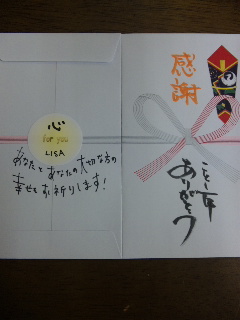 心
for you
LISA
あなたとあなたの大切な方の
幸せをお祈りします!
感謝
ことし一年
ありがとう